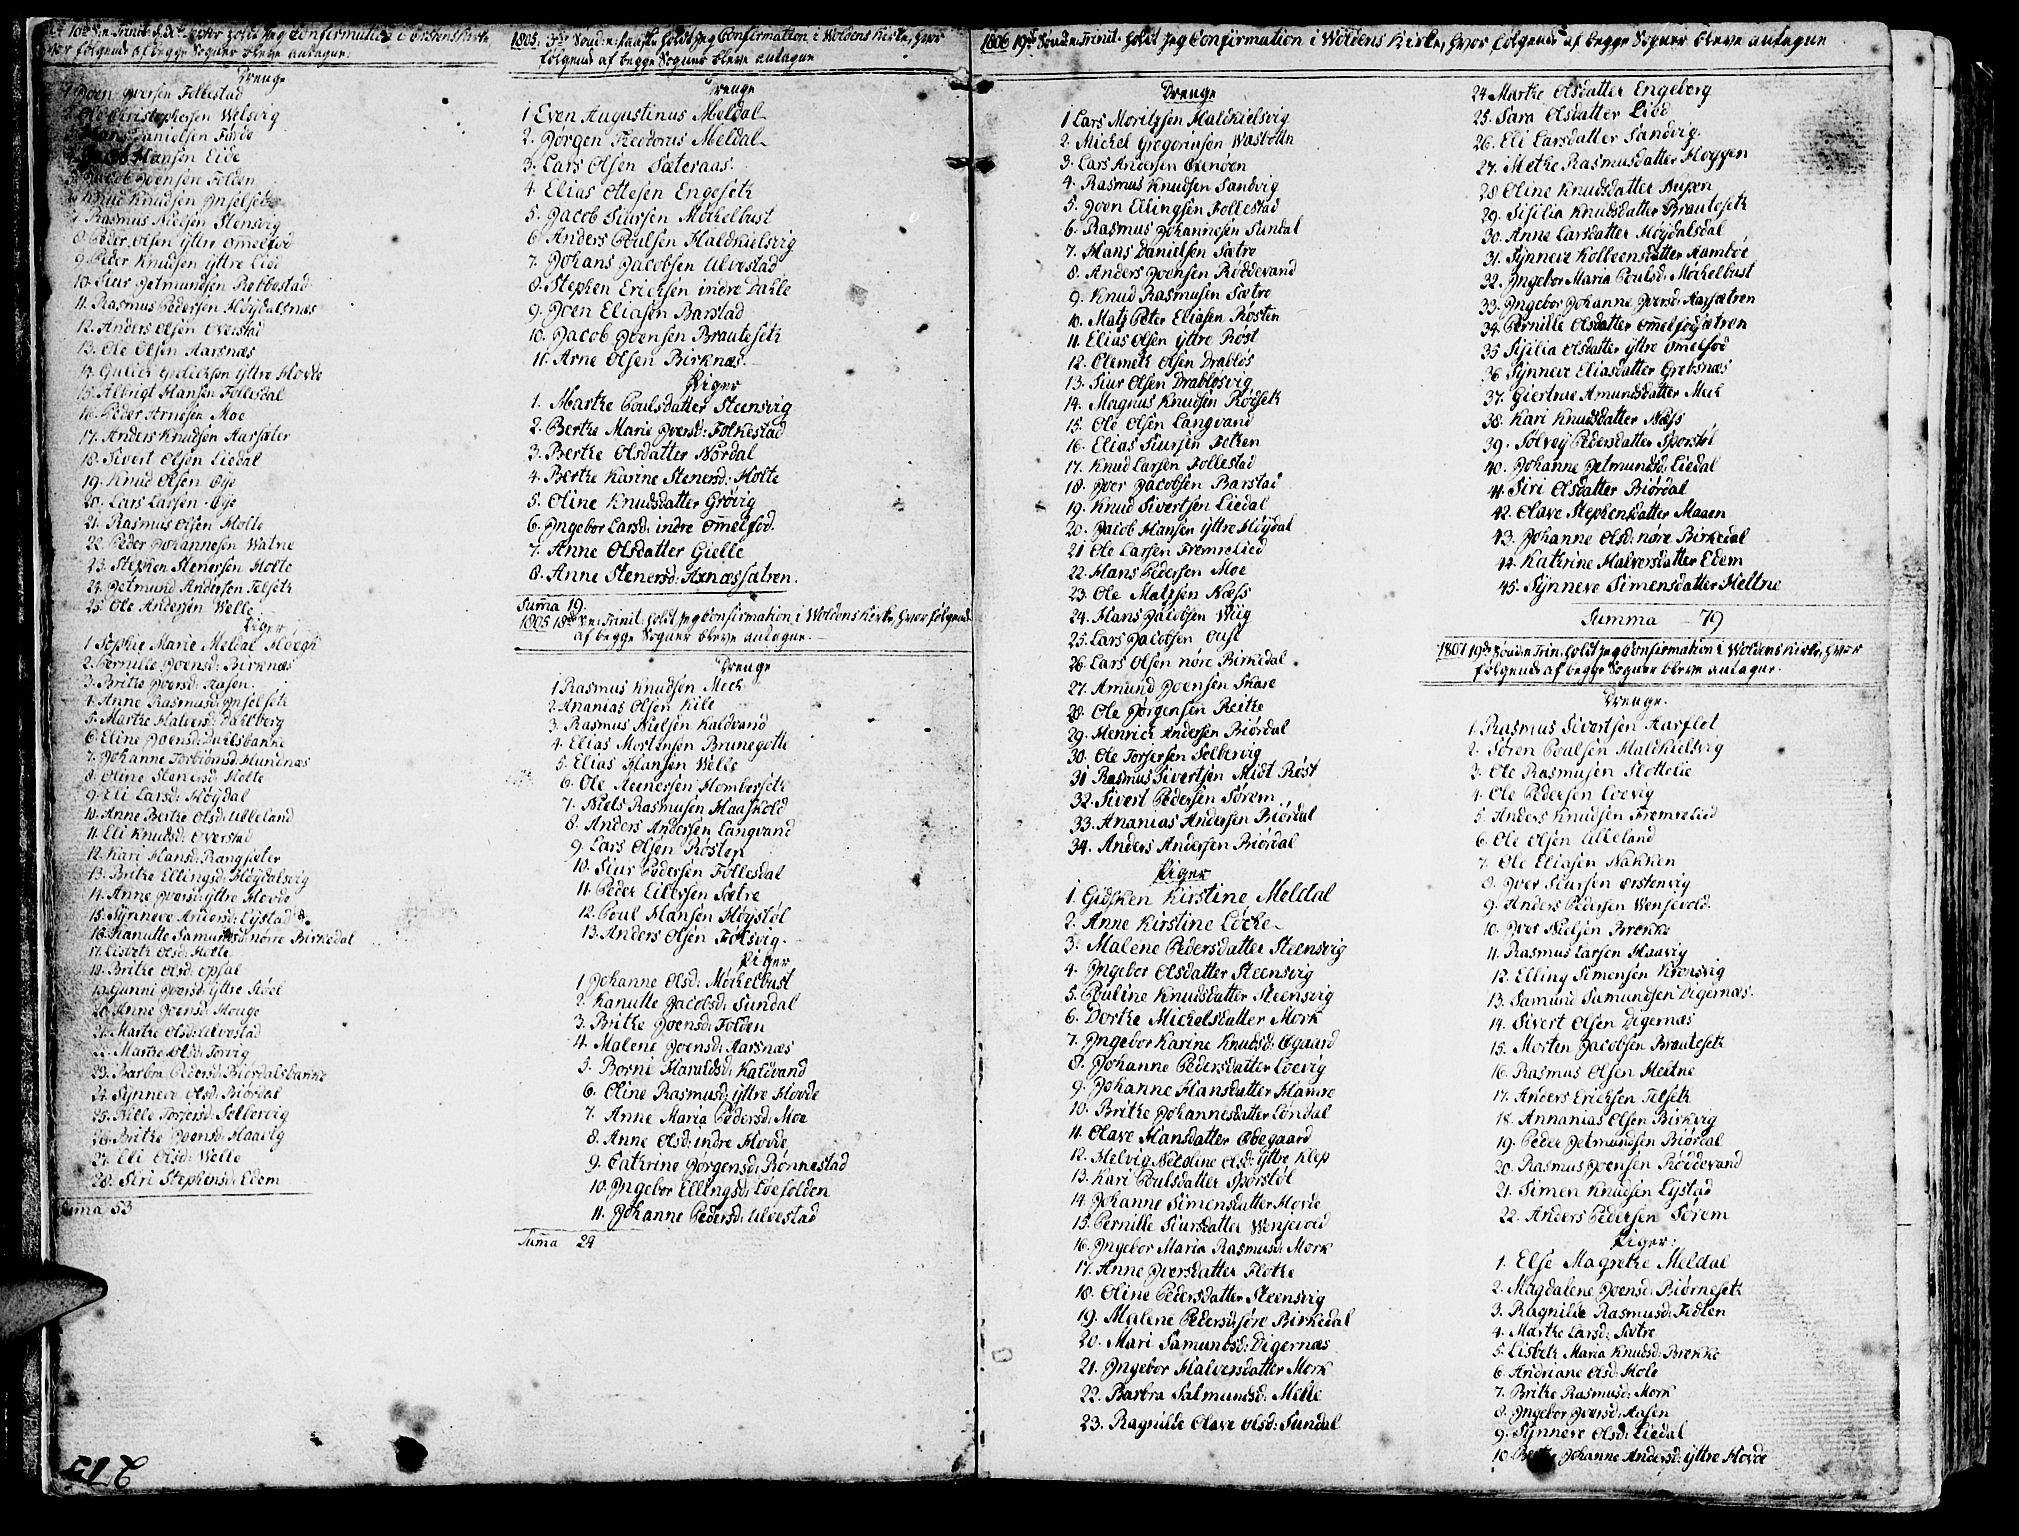 holdt jeg Confirmation i Ørstens Kirke
hvor følgende af begge Sogner bleve antagne.
Drenge
1 Joen Iversen Follestad
2. Ole Christophersen Welsvig
3. Hans Danielsen Førde
4. Jacob Hansen Eide
5. Jacob Joensen Folden
6. Knud Knudsen Inselseth
7. Rasmus Nielsen Stensvig
8. Peder Olsen ÿttre Omelfod
9. Peder Knudsen ÿttre Lied
10. Siur Jetmundsen Rebbestad
11. Rasmus Pedersen Høÿdalsnæs
12. Anders Olsen Overstad
13. Ole Olsen Aarsnæs
14. Gulick Guliksen ÿttre Hovde
15. Albrigt Hansen Follesdal
16. Peder Arnesen Moe
17. Anders Knudsen Aarsæter
18. Sivert Olsen Liedal
19. Knud Olsen Øÿe
20. Lars Larsen Øÿe
21. Rasmus Olsen Holte
22. Peder Johannesen Watne
23. Stephen Stenersen Holte
24. Jetmund Andersen Telseth
25. Ole Andersen Welle
Piger
1 Sophie Marie Meldal Høegh
2. Pernille Joensd: Birknæs
3. Brithe Iversd: Aasen
4. Anne Rasmusd: Inselseth
5. Marthe Halversd: Dahlberg
6. Eline Joensd: Dulsbanne
7. Johanne Torbiørnsd: Hundnæs
8. Oline Stenersd: Holte
9. Eli Larsd: Høÿdal
10. Anne Berthe Olsd: Ulleland
11. Eli Knudsd: Overstad
12. Kari Hansd: Rangsæter
13. Brithe Ellingsd: Høÿdalsvig
14. Anne Iversd: ÿttre Hovde
15. Sÿnneve Andersd: Lÿstad
16. Kanutte Samundsd: nørre Birkedal
17. Lisbeth Olsd: Holte
18. Brithe Olsd: Opsal
19. Gunni Iversd: ÿttre Støel
20. Anne Joensd: Houge
21. Marthe Olsd: Ulvestad
22. Marthe Olsd: Torvig
23. Barbra Pedersd: Biørdalsbakke
24. Sÿnneve Olsd: Biørdal
25. Pille Torjersd: Selbervig
26. Brithe Joensd: Haavig
27. Eli Olsd: Welle
28. Siri Stephensd: Edem
Summa 53
1805. Fast: holdt jeg Confirmation i Woldens Kirke, hvor
følgende af begge Sogner bleve antagne
Drenge
1 Even Augustinus Meldal
2. Jørgen Theodorus Meldal
3. Lars Olsen Sæteraas.
4. Elias Ottesen Engeseth
5. Jacob Siursen Møchelbust
6 Anders Poulsen Haldkielsvig
7. Johans Jacobsen Ulvestad
8. Stephen Ericksen indre Dahle
9. Joen Eliasen Barstad
10. Jacob Joensen Brauteseth
11. Arne Olsen Birknæs.
Piger
1. Marthe Poulsdatter Steensvig
2. Berthe Marie Iversd: Folkestad
3. Berthe Olsdatter Nørdal
4. Berthe Karine Stenersd: Holte
5. Oline Knudsdatter Grøvig
6. Ingebor Larsd: indre Omelfod.
7. Anne Olsdatter Gielle
8. Anne Stenersd: Axnæssætren.
Summa 19.
1805 18de S: e: Trinit: holdt jeg Confirmation i Woldens Kirke, hvor følgende
af begge Sogner bleve antagne.
Drenge
1 Rasmus Knudsen Mech
2. Ananias Olsen Kile
3. Rasmus Nielsen Kaldvand
4. Elias Mortensen Brunegotte
5. Elias Hansen Welle
6. Ole Steenersen Homberseth
7. Niels Rasmusen Haaskold
8. Anders Andersen Langvand
9. Lars Olsen Røsten
10. Sius Pedersen Follesdal
11. Peder Eilersen Sætre
12. Poul Hansen Høÿstøl
13. Anders Olsen Følsvig.
Piger
1 Johanne Olsd: Møchelbust
2. Kanutte Jacobsd: Sundal
3. Brithe Joensd: Folden
4. Malene Joensd: Aarsnæs
5. Borni Haraldsd: Kaldvand
6. Oline Rasmusd: ÿttre Hovde
7. Anne Maria Pedersd: Moe
8. Anne Olsd: indre Hovde
9. Cathrine Jørgensd: Rønnestad
10. Ingebor Ellingsd: Løefolden
11. Johanne Pedersd: Ulvestad
Summa 24
1806 19de Sönd: e: Trinit: holdt jeg Confirmation i Woldens Kirke, hvor følgende af begge Sogner bleve antagne
Drenge
1 Lars Moritzsen Haldkielsvig
2. Michel Gregoriusen Wasbotten
3. Lars Andersen Øxenøen
4. Rasmus Knudsen Sandvig
5. Joen Ellingsen Follestad
6. Rasmus Johannesen Sundal
7. Hans Danielsen Sætre
8. Anders Joensen Røddevand
9. Knud Rasmusen Sætre
10. Matz Peter Eliasen Røsten
11. Elias Olsen ÿttre Røst
12. Clemeth Olsen Drabløs
13. Siur Olsen Drabløsvig
14. Magnus Knudsen Rødseth
15. Ole Olsen Langvand
16. Elias Siursen Aatken
17. Knud Larsen Follestad
18. Iver Jacobsen Barstad
19. Knud Sivertsen Liedal
20. Jacob Hansen ÿttre Høÿdal
21 Ole Larsen Fremrelied
22. Hans Pedersen Moe
23. Ole Matzsen Næss
24. Hans Jacobsen Wiig
25. Lars Jacobsen Aust
26. Lars Olsen nøre Birkedal
27. Amund Joensen Skare
28. Ole Jørgensen Reithe
29. Henrick Andersen Biørdal
30. Ole Torjersen Selbervig
31 Rasmus Sivertsen Midt Røst
32. Sivert Pedersen Sørem
33. Ananias Andersen Biørdal
34. Anders Andersen Biørdal
Piger
1. Gidsken Kirstine Meldal
2. Anne Kirstine Løcke
3. Malene Pedersdatter Steensvig
4. Ingebor Olsdatter Steensvig
5. Pauline Knudsdatter Steensvig
6. Dorthe Michelsdatter Mork
7. Ingebor Karine Knudsd: Øgaard
8. Johanne Pedersdatter Løevig
9. Johanne Hansdatter Hamre
10. Brithe Johannesdatter Løndal
11. Olave Hansdatter Øbegaard
12. Helvig Nicoline Olsd: ÿttre Klep
13. Kari Poulsdatter Sporstøl
14. Johanne Simensdatter Hovde
15. Pernille Siursdatter Wensevold
16. Ingebor Maria Rasmusd: Mork
17. Anne Iversdatter Flothe
18. Oline Pedersdatter Steensvig
19. Malene Pedersd: søre Birkedal
20. Mari Samundsd: Digernæs
21. Ingebor Halversdatter Mork
22. Barbra Salmundsd: Melle
23. Ragnilde Olave Olsd: Sundal
24 Marthe Olsdatter Engeberg
25. Sara Olsdatter Lied
26. Eli Larsdatter Sandvig
27. Methe Rasmusdatter Høggen
28 Oline Knudsdatter Aurøen
29. Sisilia Knudsdatter Brauteseth
30. Anne Larsdatter Høÿdalsdal
31. Sÿnneve Kolbeensdatter Aambøe
32. Ingebor Maria Poulsd: Møchelbust
33. Ingebor Johanne Iversd: Aarsætren
34. Pernille Olsdatter Omelfodsætren
35 Sisilia Olsdatter ÿttre Omelfod
36 Sÿnneve Eliasdatter Grebsnæs
37. Giertrue Amundsdatter Mech
38. Kari Knudsdatter Næss
39. Solvej Pedersdatter Sporstøl
40. Johanne Jetmundsd: Liedal
41. Siri Olsdatter Biørdal
42. Olave Stephensdatter Maaen
43. Johanne Olsd: nøre Birkedal
44. Kathrine Halversdatter Edem
45. Sÿnneve Simensdatter Heltne
Summa 79
1807 19de Sönd: e Trin: holdt jeg Confirmation i Woldens Kirke, hvor
følgende af begge Sogner bleve antagne.
Drenge.
1. Rasmus Sivertsen Aarflot
2. Søren Poulsen Haldkielsvig
3. Ole Rasmusen Slottelie
4. Ole Pedersen Løevig
5. Anders Knudsen Fremrelied
6. Ole Olsen Ulleland
7. Ole Eliasen Nakken
8. Iver Siursen Ørstenvig
9. Anders Pedersen Wensevold.
10. Iver Nielsen Brekke
11. Rasmus Larsen Haavig
12. Elling Simensen Krensvig
13. Samund Samundsen Digernæs.
14. Sivert Olsen Digernæs
15. Morten Jacobsen Brauteseth
16. Rasmus Olsen Heltne
17. Anders Ericksen Telseth
18. Annanias Olsen Birkvig
19. Peder Jetmundsen Biørdal
20. Rasmus Joensen Røddevand
21. Simen Knudsen Lÿstad
22. Anders Pedersen Sørem
Piger:
1. Else Magrethe Meldal
2. Magdalene Joensd: Biørneseth
3. Ragnilde Rasmusd: Aatten
4. Marthe Larsd: Sætre
5. Lisbeth Maria Knudsd: Brekke
6. Andriane Olsd: Hole
7. Brithe Rasmusd: Mork
8. Ingebor Iversd: Aasen
9. Sÿnneve Olsd: Liedal
10. Johanne Andersd: ÿttre Hovde